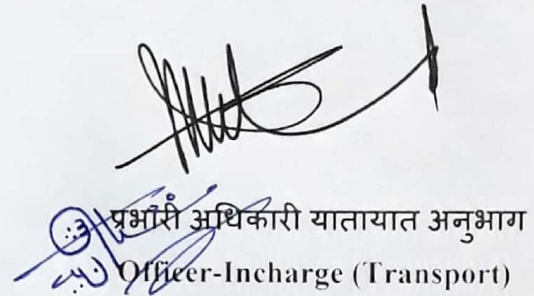 प्रभारी अधिकारी यातायात अनुभाग
Officer-Incharge (Transport)